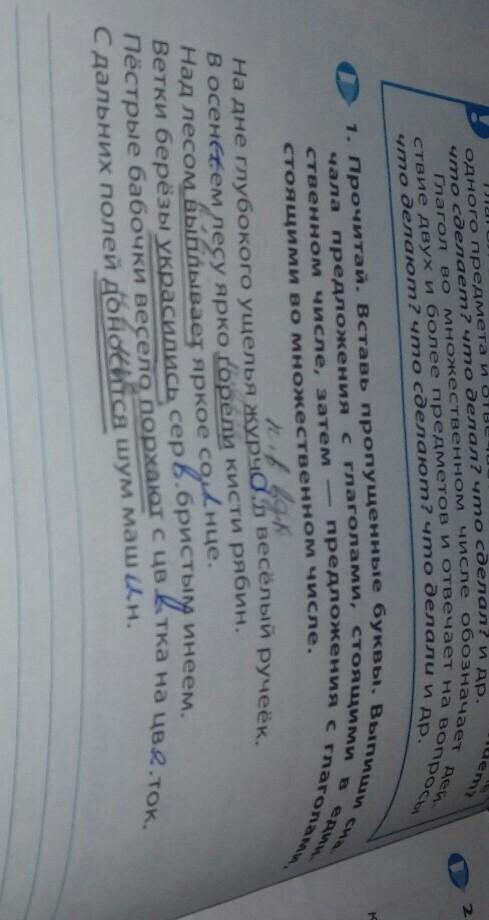 одного предмета и
что сделает? что делал? что сделал? и др.
Глагол во множественном числе обозначает дей-
ствие двух и более предметов и отвечает на вопросы
что делают? что сделают? что делали и др.
1. Прочитай. Вставь пропущенные буквы. Выпиши сна-
чала предложения с глаголами, стоящими в един-
ственном числе, затем — предложения с глаголами,
стоящими во множественном числе.
На дне глубокого ущелья журчал весёлый ручеёк.
В осеннем лесу ярко горели кисти рябин.
Над лесом выплывает яркое солнце.
Ветки берёзы украсились сер.бристым инеем.
Пёстрые бабочки весело порхают с цв тка на цве.ток.
С дальних полей доносится шум машин.
2.